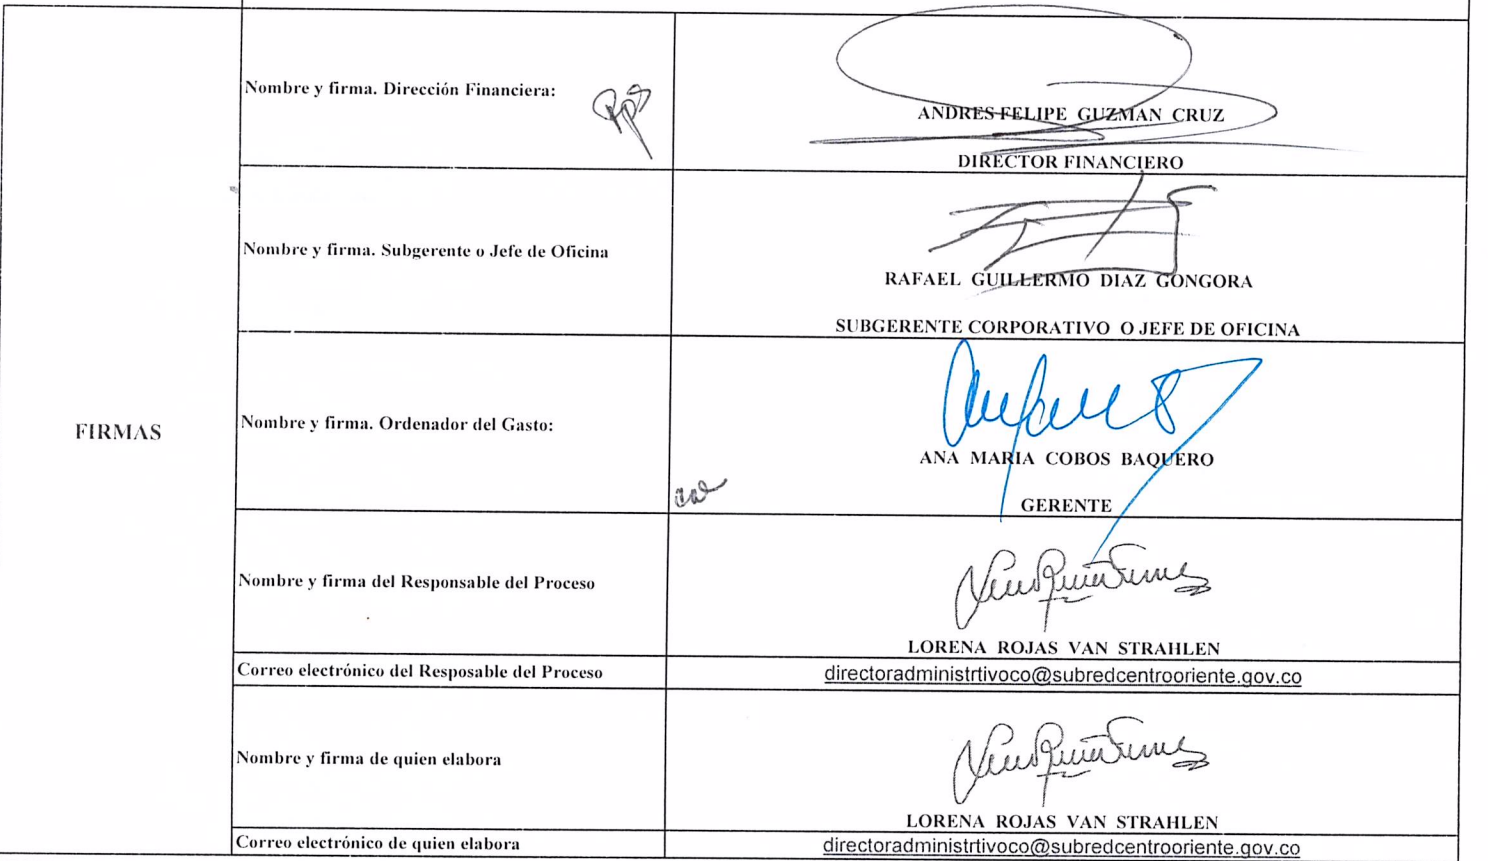 Nombre y firma. Dirección Financiera:
ANDRES FELIPE GUZMAN CRUZ
DIRECTOR FINANCIERO
Nombre y firma. Subgerente o Jefe de Oficina
RAFAEL GUILLERMO DIAZ GONGORA
SUBGERENTE CORPORATIVO O JEFE DE OFICINA
FIRMAS
Nombre y firma. Ordenador del Gasto:
ANA MARIA COBOS BAQUERO
GERENTE
Nombre y firma del Responsable del Proceso
LORENA ROJAS VAN STRAHLEN
Correo electrónico del Resposable del Proceso
directoradministrtivoco@subredcentrooriente.gov.co
Nombre y firma de quien elabora
LORENA ROJAS VAN STRAHLEN
Correo electrónico de quien elabora
directoradministrtivoco@subredcentrooriente.gov.co